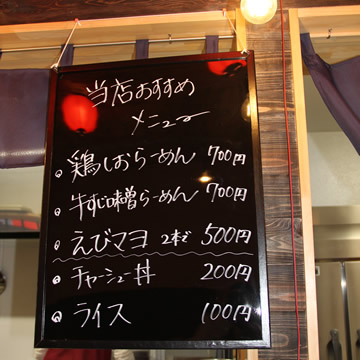 当店おすすめ
メニュー
鶏しおらーめん 700円
牛すじ味噌らーめん 700円
えびマヨ 2本で 500円
チャーシュー丼 200円
ライス 100円